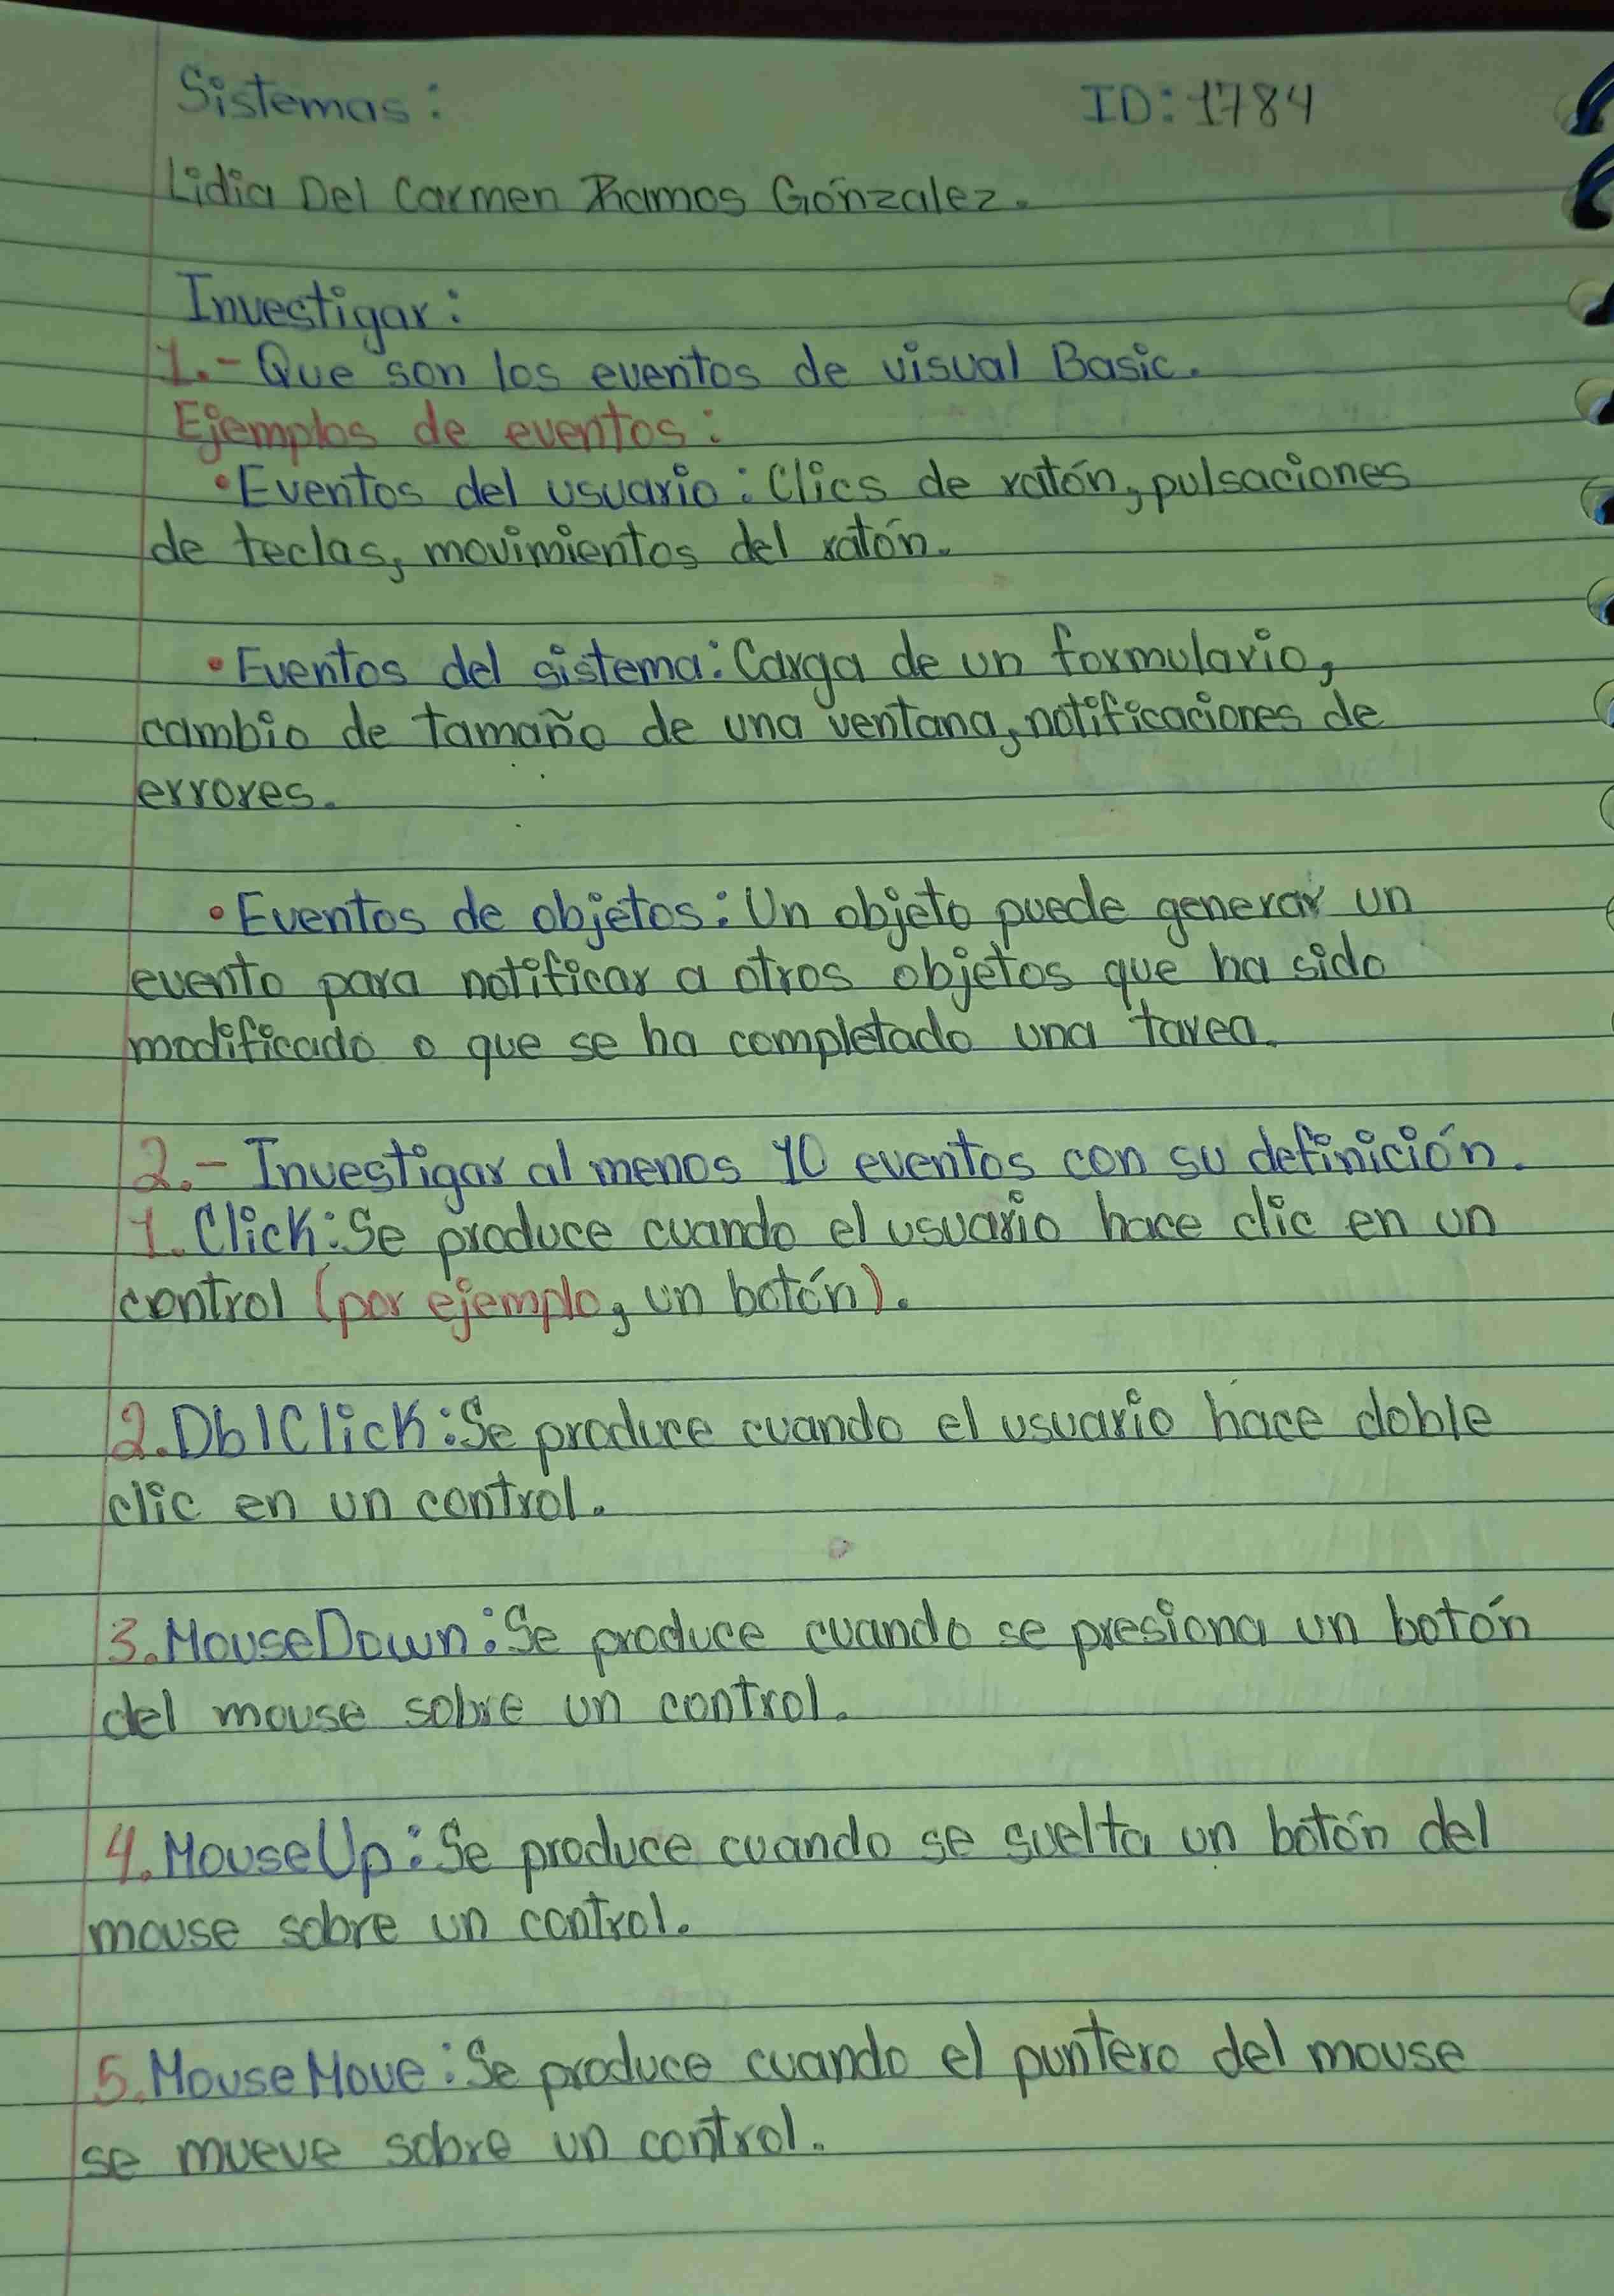 Sistemas: ID: 1784
Lidia Del Carmen Ramos Gónzalez.
Investigar:
1.- Que son los eventos de visual Basic.
Ejemplos de eventos:
• Eventos del usuario: Clics de ratón, pulsaciones
de teclas, movimientos del ratón.
• Eventos del sistema: Carga de un formulario,
cambio de tamaño de una ventana, notificaciones de
errores.
• Eventos de objetos: Un objeto puede generar un
evento para notificar a otros objetos que ha sido
modificado o que se ha completado una tarea.
2.- Investigar al menos 10 eventos con su definición.
1. Click: Se produce cuando el usuario hace clic en un
control (por ejemplo, un botón).
2. DblClick: Se produce cuando el usuario hace doble
clic en un control.
3. MouseDown: Se produce cuando se presiona un botón
del mouse sobre un control.
4. MouseUp: Se produce cuando se suelta un botón del
mouse sobre un control.
5. MouseMove: Se produce cuando el puntero del mouse
se mueve sobre un control.